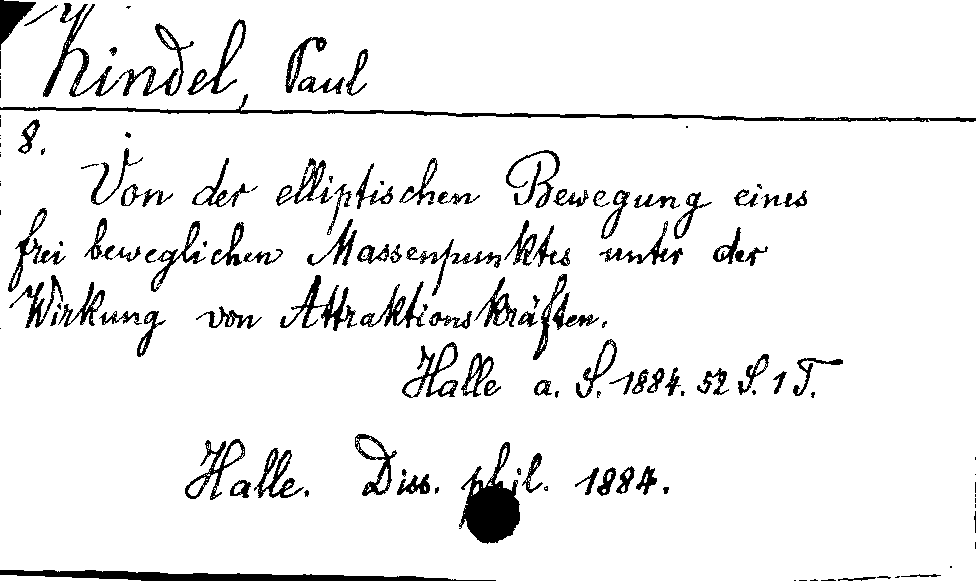 Kindel, Paul
8.
Von der elliptischen Bewegung eines
frei beweglichen Massenpunktes unter der
Wirkung von Attraktionskräften.
Halle a. S. 1884. 52 S. 1 T.
Halle. Diss. phil. 1884.